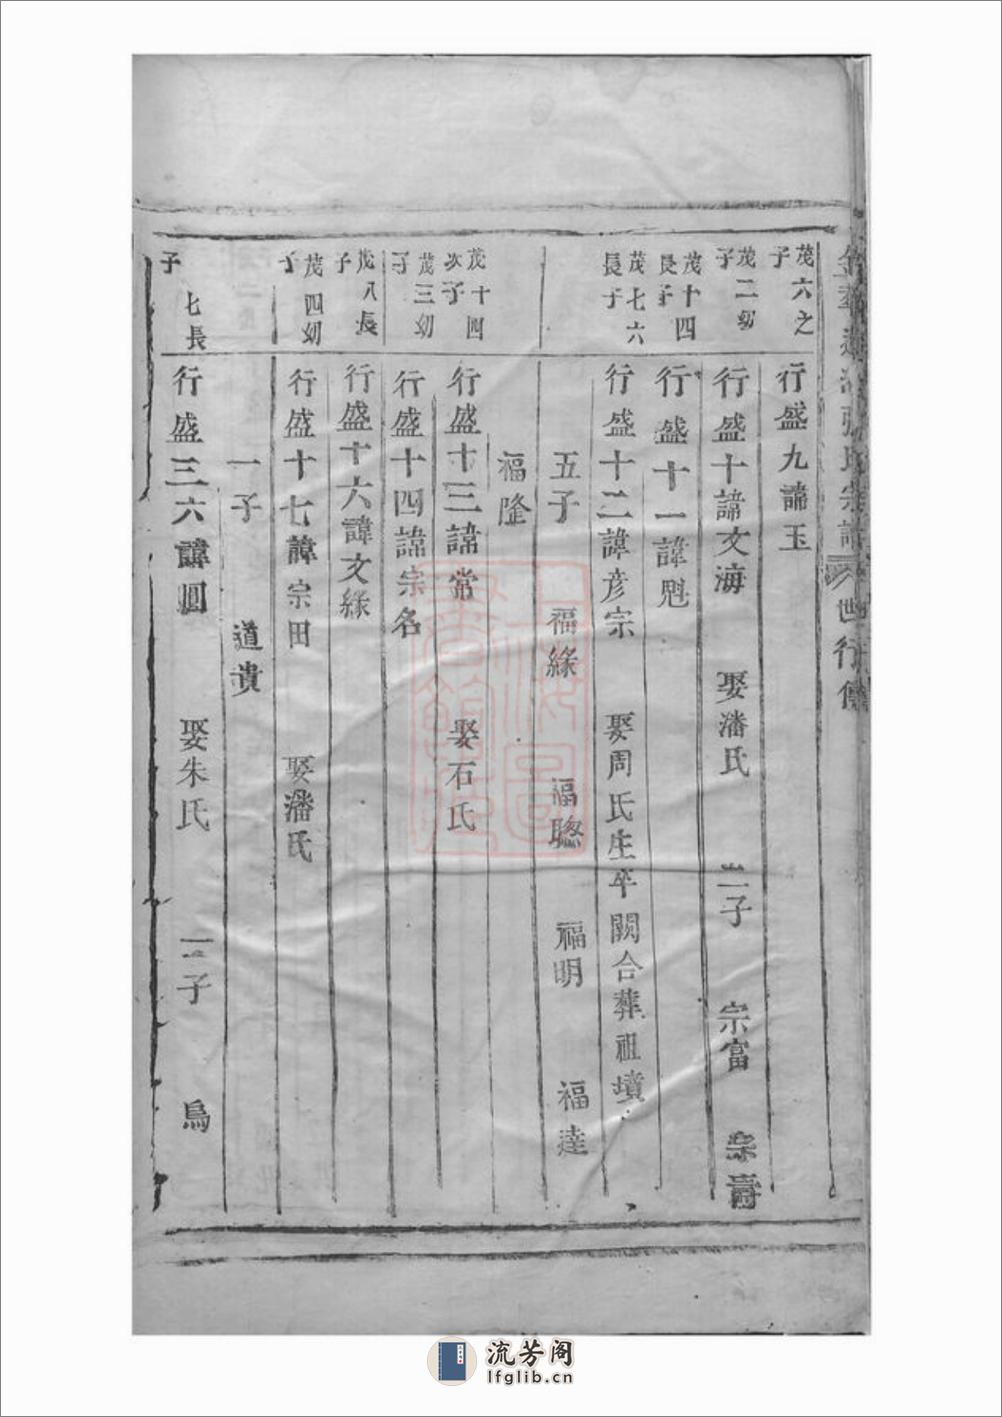 氏宗譜 世行傳
茂六之子
行盛九諱玉
茂二幼子
行盛十諱文海 娶潘氏 二子 宗富 宗壽
茂十四長子
行盛十一諱魁
茂七六長子
行盛十二諱彦宗 娶周氏生卒闕合葬祖墳
五子 福緣 福聰 福明 福達
福隆
茂十四次子
行盛十三諱常 娶石氏
茂三幼子
行盛十四諱宗名
茂八長子
行盛十六諱文緣
茂四幼子
行盛十七諱宗田 娶潘氏
一子 道貴
七長子
行盛三六諱圓 娶朱氏 子 烏
上海圖書館藏
流芳阁
lfglib.cn